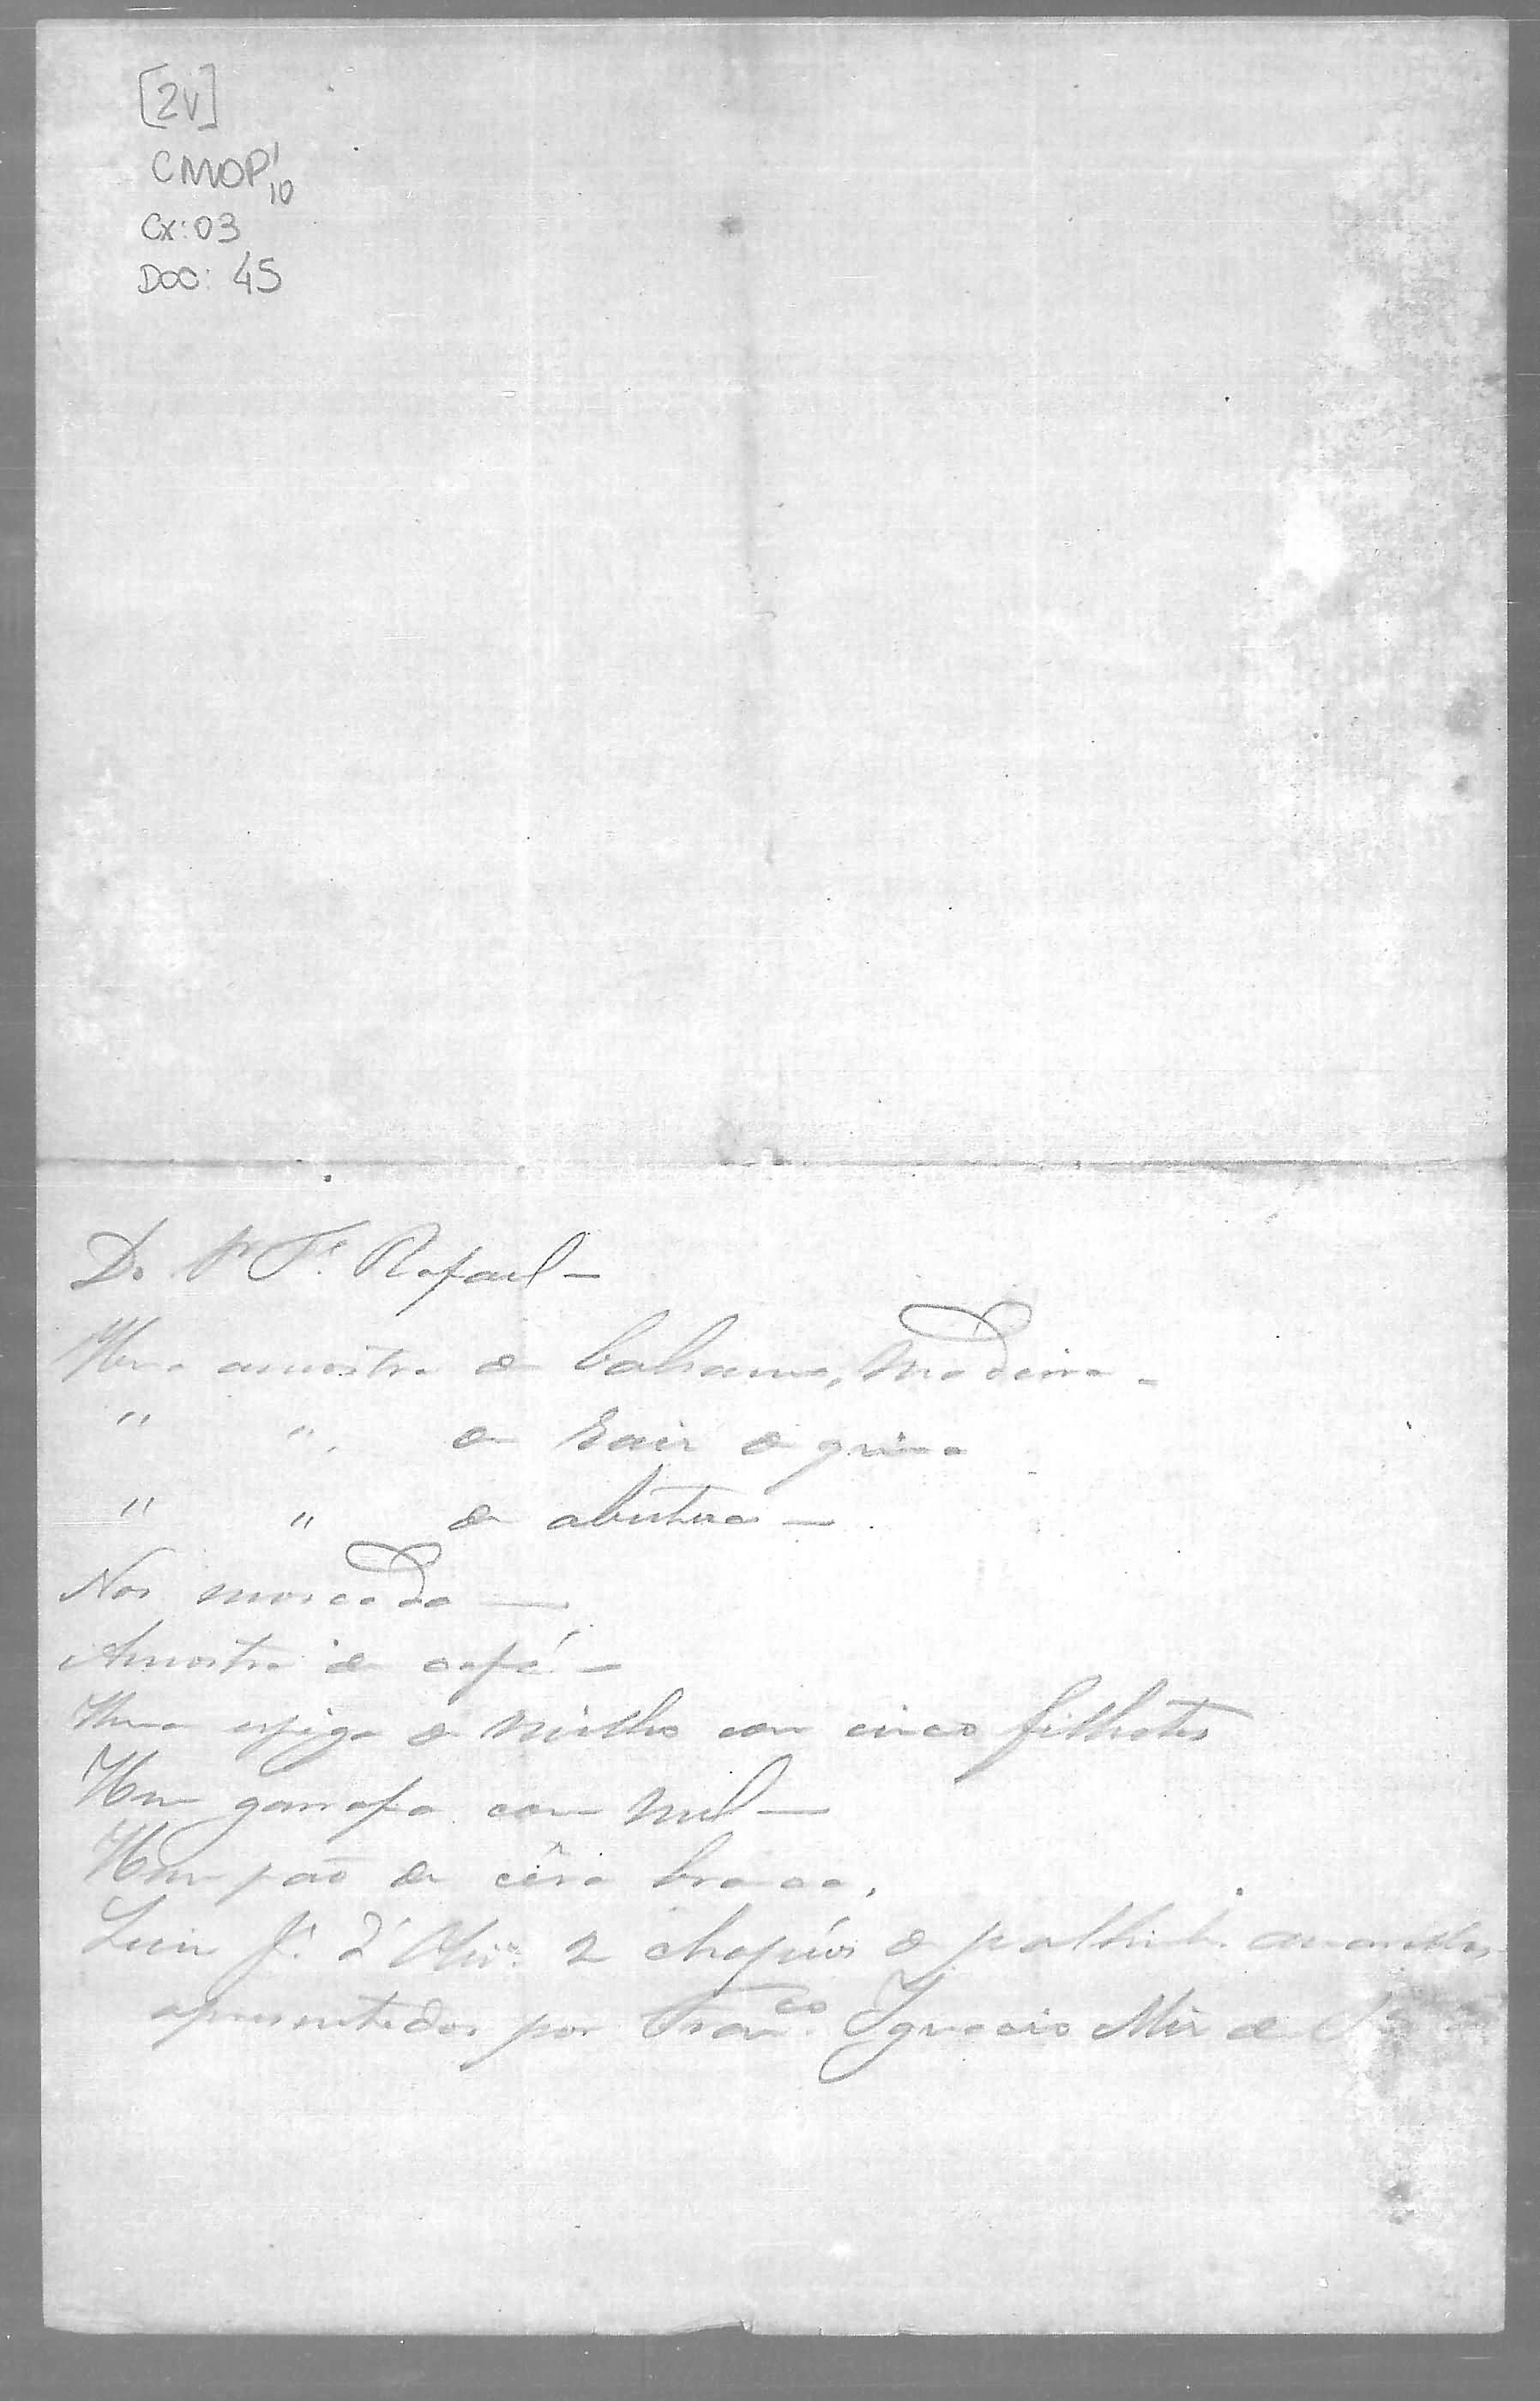 [2v]
CMOP 1/10
Cx: 03
Doc: 45
Do Rafael —
Huma amostra de balsamo, madeira -
" " de raiz de
" " de abutua —
Nos moscada —
Amostra de café —
Huma espiga de milho com cinco filhotes
Huma garrafa com mel —
Hum pão de cêra branca.
Luis J.e d'Olivr.a 2 chapéos de palhinha amarellos
apresentados por Fran.co Ignacio Mir de